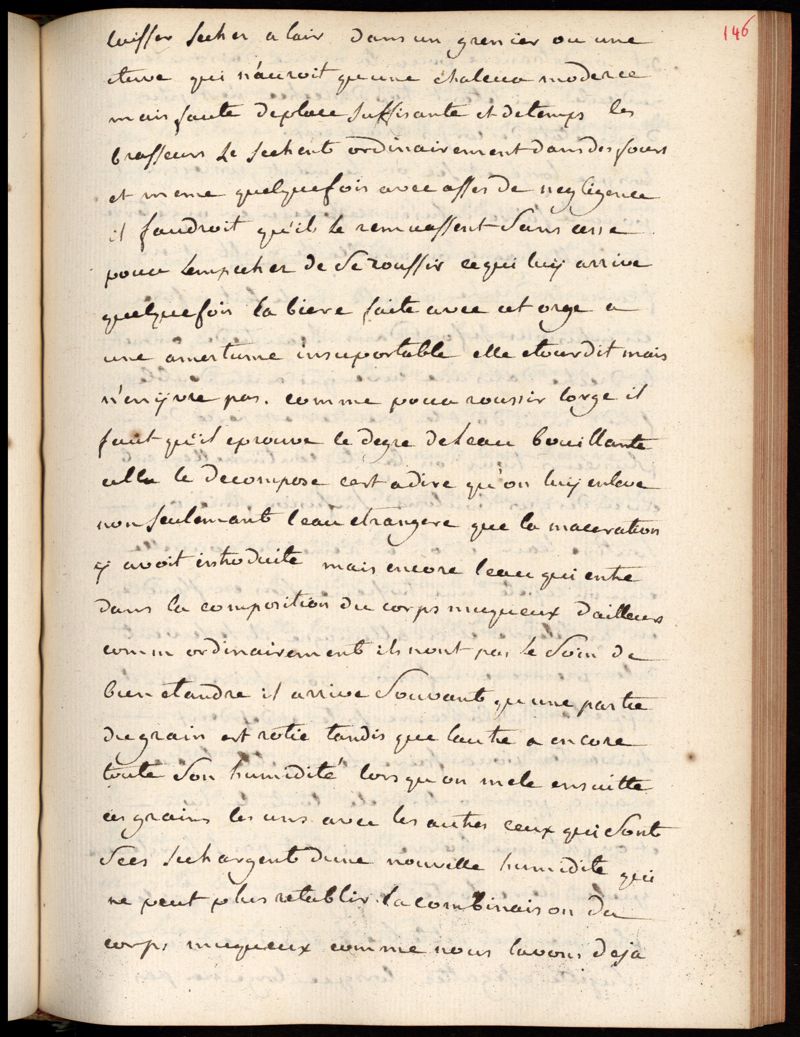 146
laisser secher a lair dans un grenier ou une
etuve qui n'auroit qu'une chaleur moderee
mais faute deplace suffisante et detemps les
brasseurs le sechent ordinairement dans des fours
et meme quelquefois avec asses de negligence
il faudroit qu'ils le remuassent sans cesse
pour lempecher de se roussir cequi luy arrive
quelquefois la biere faite avec cet orge a
une amertume insuportable elle etourdit mais
n'enyvre pas. comme pour roussir lorge il
faut qu'il eprouve le degre deleau bouillante
cella le decompose cest adire qu'on luy enleve
non seulemant leau etrangere que la maceration
y avoit introduite mais encore leau qui entre
dans la composition du corps muqueux dailleurs
comm ordinairement ils nont pas le soin de
bien etandre il arrive souvant qu'une partie
du grain est rotie tandis que lautre a encore
toute son humidité lorsqu'on mele ensuitte
ces grains les uns avec les autres ceux qui sont
secs sechargent dune nouvelle humidite qui
ne peut plus retablir la combinaison du
corps muqueux comme nous lavons deja